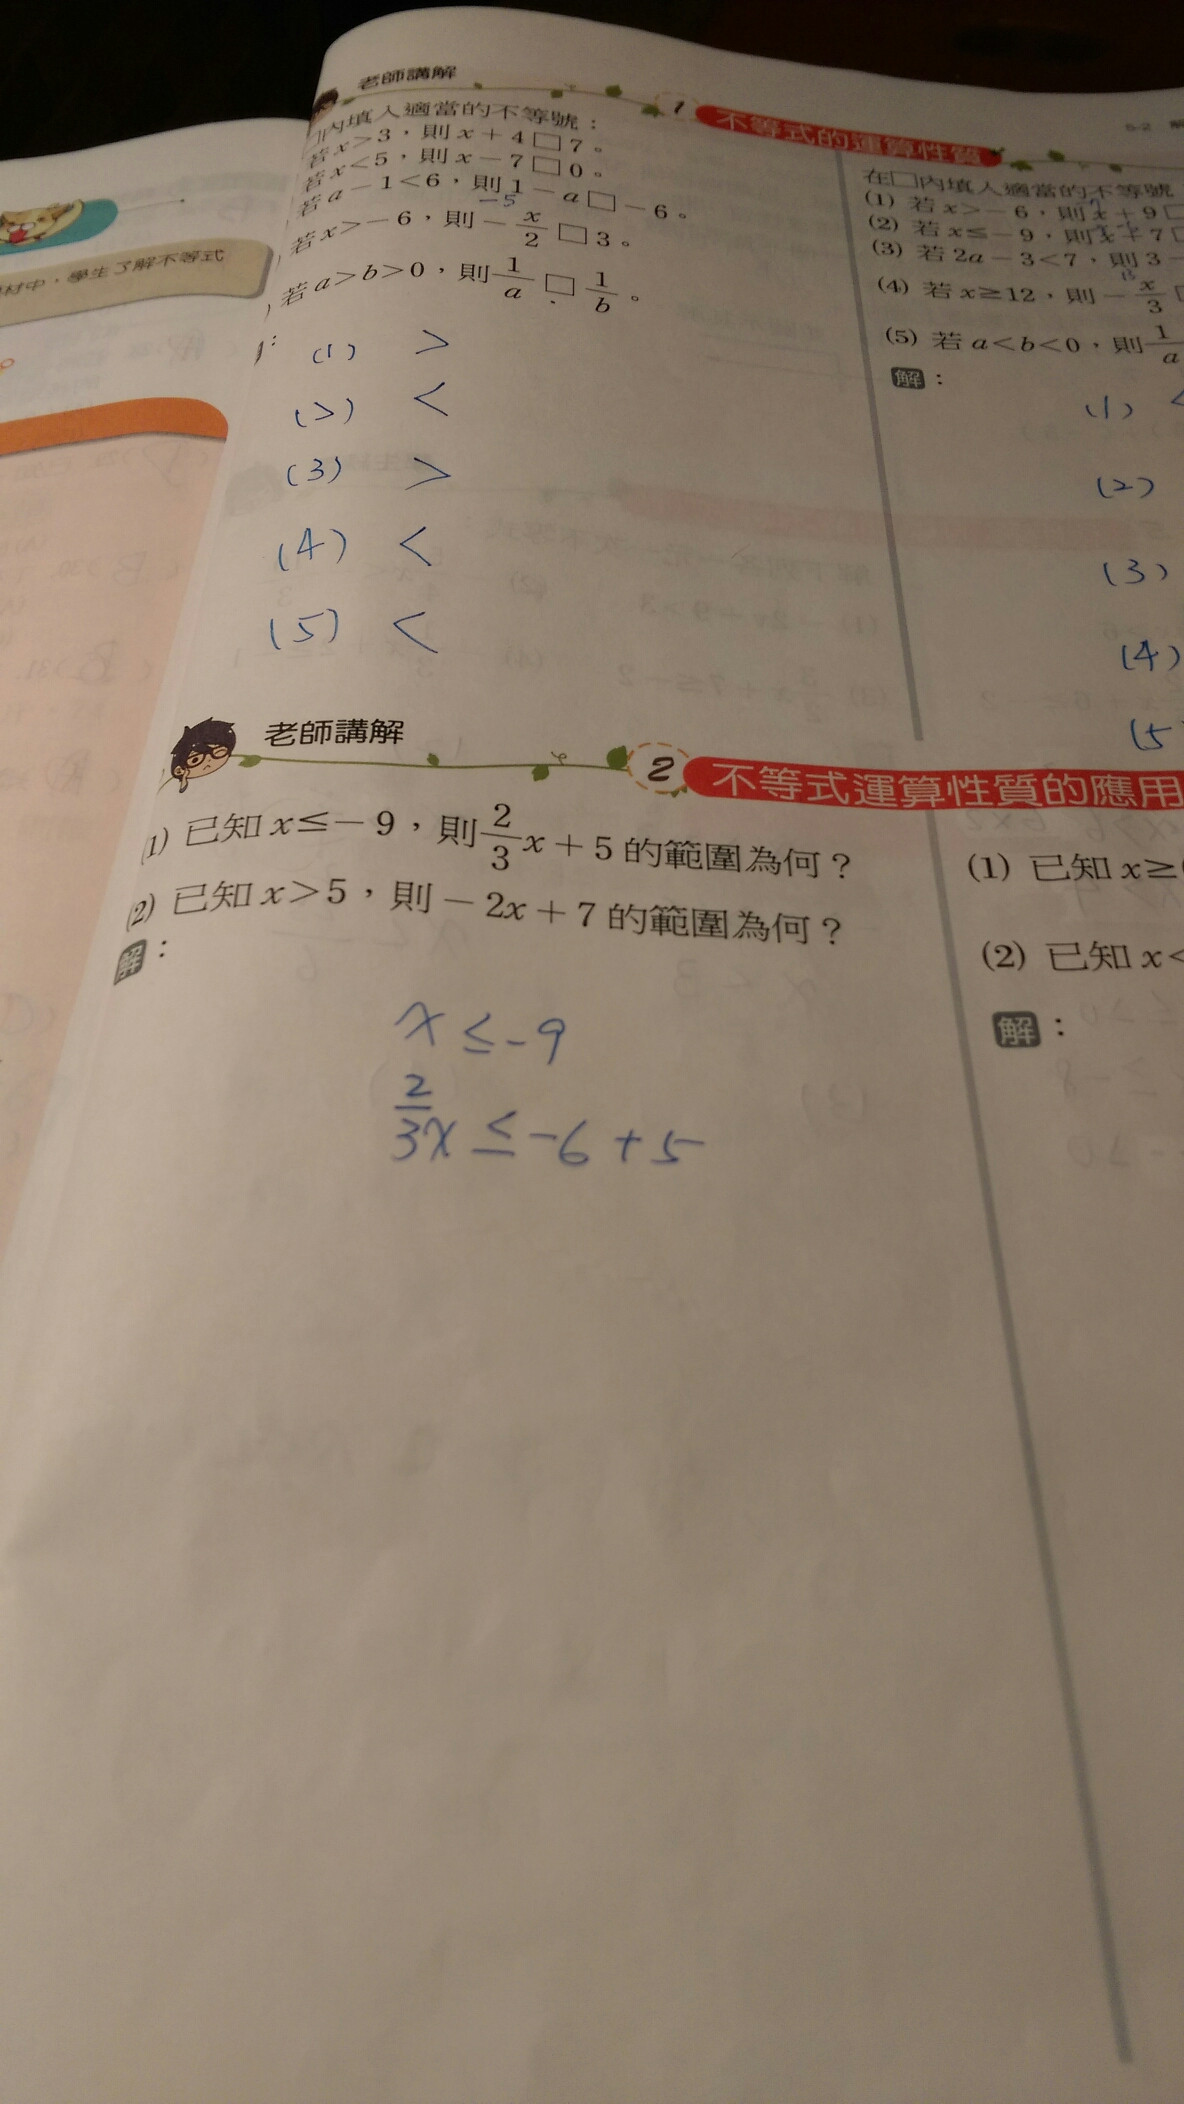 老師講解
1 不等式的運算性質
5-2
□內填入適當的不等號：
若x>3，則x+4□7。
若x<5，則x-7□0。
若a-1<6，則1-a□-6。
-5
若x>-6，則-x/2□3。
若a>b>0，則1/a□1/b。
(1) >
(2) <
(3) >
(4) <
(5) <
在□內填入適當的不等號
(1) 若x>-6，則x+9□
(2) 若x≤-9，則x+7□
(3) 若2a-3<7，則3-
(4) 若x≥12，則-x/3
(5) 若a<b<0，則1/a
解：
(1) <
(2)
(3)
(4)
(5
材中，學生了解不等式
老師講解
2 不等式運算性質的應用
(1) 已知x≤-9，則2/3x+5的範圍為何？
(2) 已知x>5，則-2x+7的範圍為何？
解：
x≤-9
2/3x≤-6+5
(1) 已知x≥
(2) 已知x<
解：